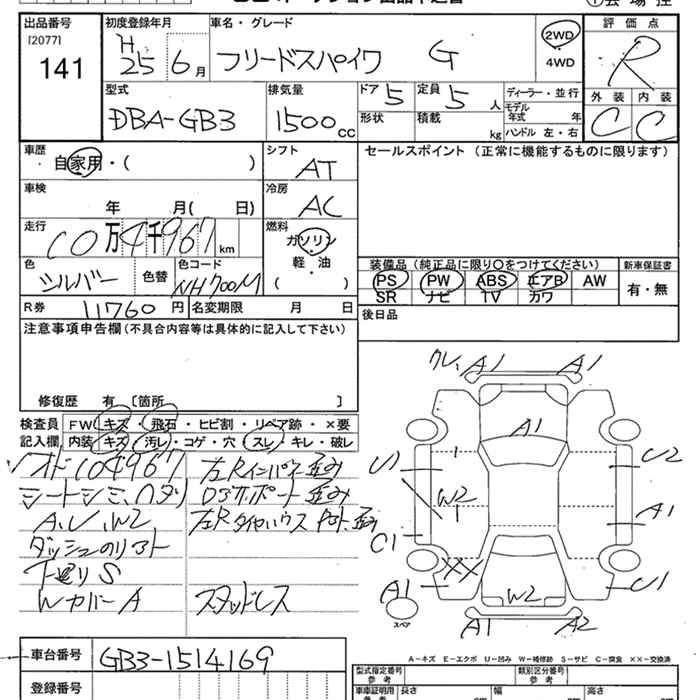 出品番号
[2077]
141
初度登録年月
H
25 6月
車名・グレード
フリードスパイク G
2WD
4WD
評価点
R
外装 内装
C C
型式
DBA-GB3
排気量
1500 CC
ドア 5
定員 5 人
形状
積載 kg
ディーラー・並行
モデル年式 年
ハンドル 左・右
車歴
自家用・( )
シフト
AT
セールスポイント (正常に機能するものに限ります)
車検
年 月( 日)
冷房
AC
走行
10万4千967km
燃料
ガソリン
軽・油
( )
色
シルバー
色替
色コード
NH700M
装備品 (純正品に限り○をつけてください)
PS PW ABS エアB AW
SR ナビ TV カワ
新車保証書
有・無
R券 11760円
名変期限 月 日
後日品
注意事項申告欄(不具合内容等は具体的に記入して下さい)
修復歴 有 [箇所 ]
検査員
記入欄
FW キズ・飛石・ヒビ割・リペア跡・×要
内装 キズ・汚レ・コゲ・穴・スレ・キレ・破レ
メオド104967
シートシミ、ハタリ
A、U、W2
下廻りS
WカバーA
左Rインパネ歪み
左Rタイヤハウス
スタッドレス
A1 A1
A1
U1 U2
W2
A1
C1
XX
A1
スペア
W2
U1
A1 A2
A－キズ E－エクボ U－凹み W－補修跡 S－サビ C－腐食 XX－交換済
車台番号
GB3-1514169
登録番号
型式指定番号
参考
類別区分番号
参考
車庫証明用
参考
長さ
幅
高さ